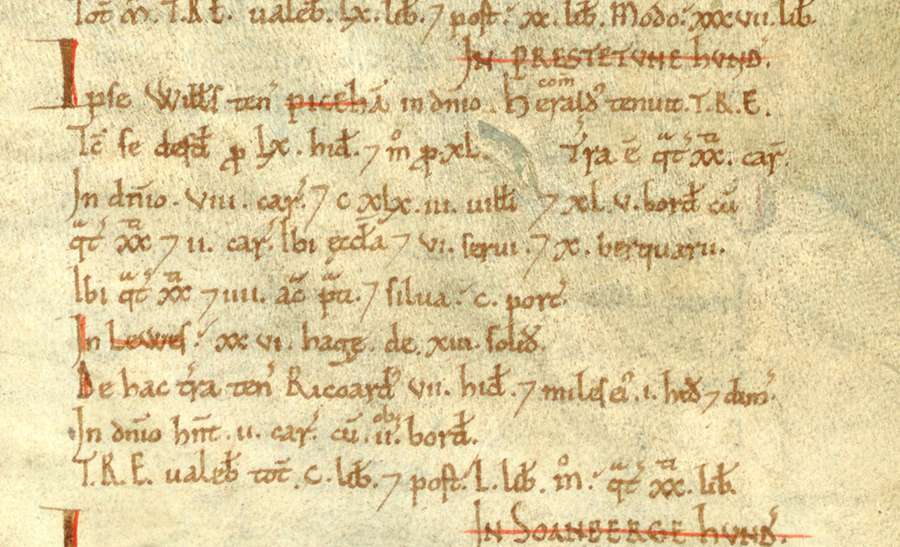 Tot̄ M̄. T.R.E. valeb̄. lx. lib̄. ⁊ post: xx. lib̄. Modo: xxxvii. lib̄.
IN PRESTETUNE HUND'.
Ipse Will's ten' PICEHĀ in dn̄io. Herald' com tenuit. T.R.E.
Tc̄ se defd̄ p̱ lx. hid̄. ⁊ m̊ p̱ xl. Tr̄a ē qͣt xx̄. car̄.
In dn̄io. viii. car̄. ⁊ c xlx. iii. uill'i ⁊ xl. v. bord̄ cū
qͣt xx̄ ⁊ ii. car̄. Ibi æccl̄a ⁊ vi. serui. ⁊ x. berquarii.
Ibi qͣt xx̄ ⁊ iiii. ac̄ p̄ti. ⁊ silua: c. porc̄.
In Lewes: xxvi. hagę. de. xiii. solid̄.
De hac tr̄a ten' Ricoard' vii. hid̄. ⁊ miles ei'. i. hid̄ ⁊ dim̄.
In dn̄io hn̄t. ii. car̄. cū. ii. ob; bord̄.
T.R.E. valeb̄ tot̄. c. lib̄. ⁊ post: l. lib̄. m̊: qͣt xx̄. lib̄.
IN SOANBERGE HUND'.